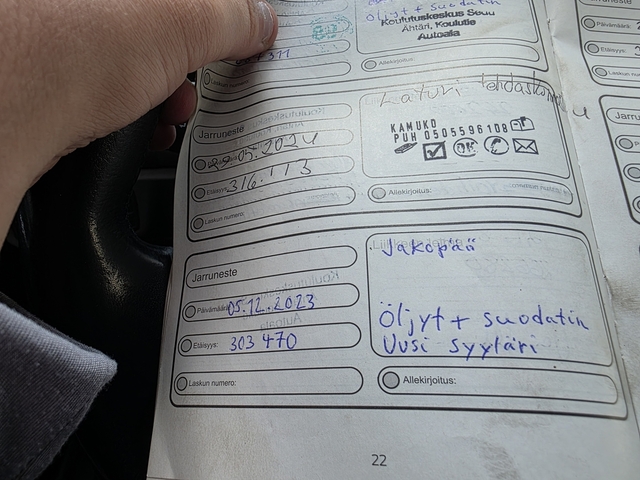 Öljyt + suodatin
Koulutuskeskus Sedu
Ähtäri, Koulutie
Autoala
Allekirjoitus:
Laskun numero:
Laturi tehdaskunnostettu
Jarruneste
KAMUKO
PUH 0505596108
OK
29.05.2024
Etäisyys:
316.113
Allekirjoitus:
Laskun numero:
Jakopää
Jarruneste
Päivämäärä:
05.12.2023
Öljyt + suodatin
Etäisyys:
303 470
Uusi syylari
Laskun numero:
Allekirjoitus:
22
Päivämäärä:
Etäisyys:
Laskun numero: